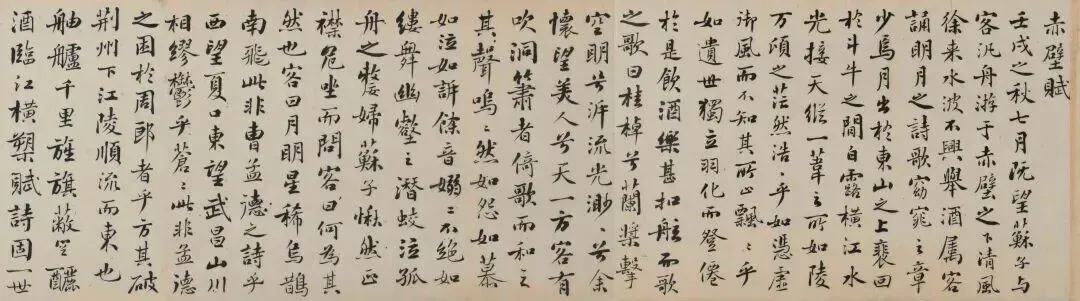 赤壁賦
壬戌之秋七月既望蘇子与
客汎舟游于赤壁之下清風
徐来水波不興舉酒属客
誦明月之詩歌窈窕之章
少焉月出於東山之上裵回
於斗牛之間白露橫江水
光接天縱一葦之所如陵
万頃之茫然浩〻乎如憑虛
御風而不知其所止飄〻乎
如遺世獨立羽化而登僊
於是飲酒樂甚扣舷而歌
之歌曰桂棹兮蘭槳擊
空明兮泝流光渺〻兮余
懷望美人兮天一方客有
吹洞簫者倚歌而和之
其聲嗚〻然如怨如慕
如泣如訴餘音嫋〻不絕如
縷舞幽壑之潛蛟泣孤
舟之嫠婦蘇子愀然正
襟危坐而問客曰何為其
然也客曰月明星稀烏鵲
南飛此非曹孟德之詩乎
西望夏口東望武昌山川
相繆鬱乎蒼〻此非孟德
之困於周郎者乎方其破
荆州下江陵順流而東也
舳艫千里旌旗蔽空釃
酒臨江橫槊賦詩固一世